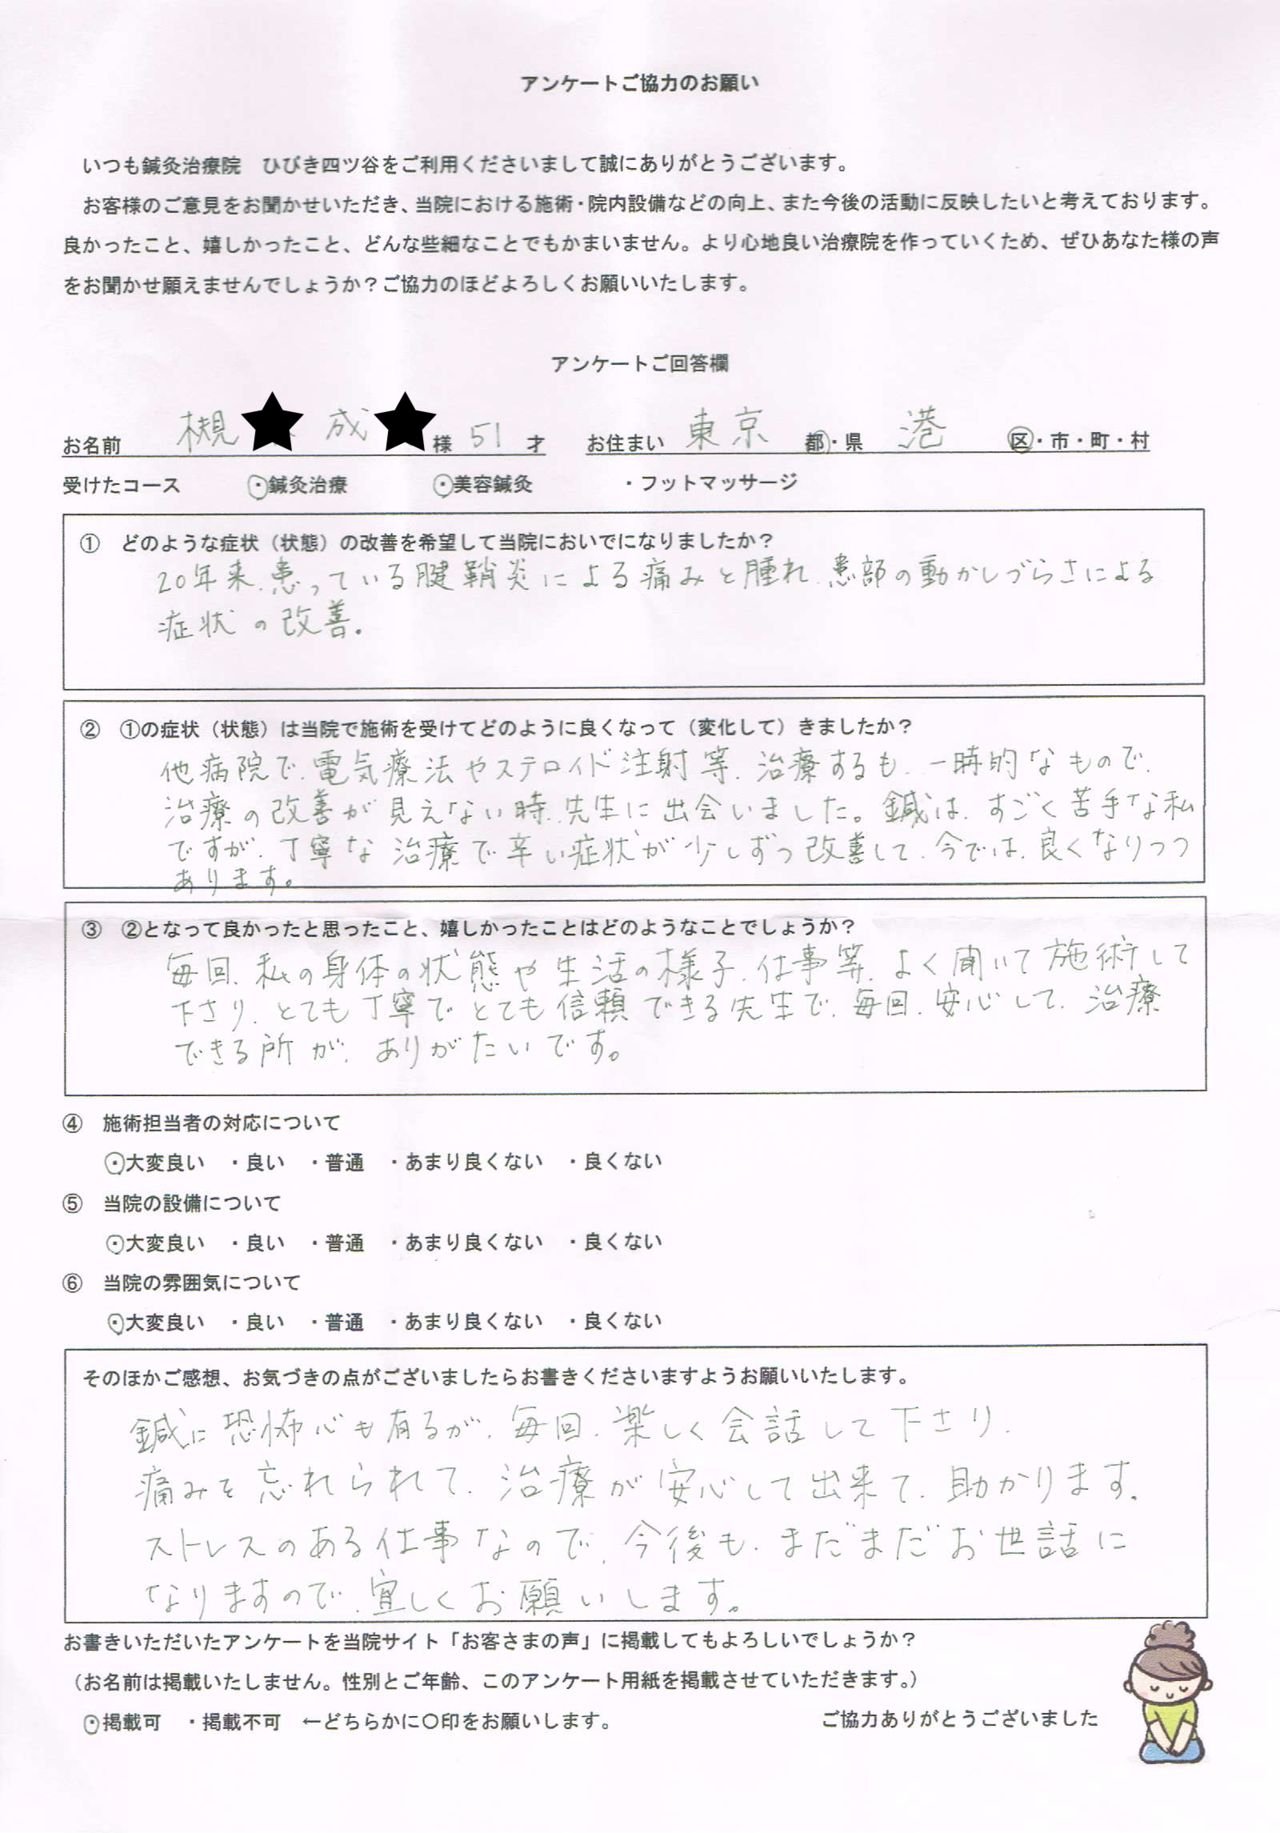 アンケートご協力のお願い
いつも鍼灸治療院　ひびき四ツ谷をご利用くださいまして誠にありがとうございます。
お客様のご意見をお聞かせいただき、当院における施術・院内設備などの向上、また今後の活動に反映したいと考えております。
良かったこと、嬉しかったこと、どんな些細なことでもかまいません。より心地良い治療院を作っていくため、ぜひあなた様の声
をお聞かせ願えませんでしょうか？ご協力のほどよろしくお願いいたします。
アンケートご回答欄
お名前　槻　成　様　51　才　お住まい　東京　都・県　港　区・市・町・村
受けたコース　・鍼灸治療　・美容鍼灸　・フットマッサージ
①　どのような症状（状態）の改善を希望して当院においでになりましたか？
20年来、患っている腱鞘炎による痛みと腫れ、患部の動かしづらさによる
症状の改善。
②　①の症状（状態）は当院で施術を受けてどのように良くなって（変化して）きましたか？
他病院で、電気療法やステロイド注射等、治療するも、一時的なもので、
治療の改善が見えない時、先生に出会いました。鍼は、すごく苦手な私
ですが、丁寧な治療で辛い症状が少しずつ改善して、今では、良くなりつつ
あります。
③　②となって良かったと思ったこと、嬉しかったことはどのようなことでしょうか？
毎回、私の身体の状態や生活の様子、仕事等、よく聞いて施術して
下さり、とても丁寧でとても信頼できる先生で、毎回、安心して、治療
できる所が、ありがたいです。
④　施術担当者の対応について
・大変良い　・良い　・普通　・あまり良くない　・良くない
⑤　当院の設備について
・大変良い　・良い　・普通　・あまり良くない　・良くない
⑥　当院の雰囲気について
・大変良い　・良い　・普通　・あまり良くない　・良くない
そのほかご感想、お気づきの点がございましたらお書きくださいますようお願いいたします。
鍼に恐怖心も有るが、毎回、楽しく会話して下さり、
痛みを忘れられて、治療が安心して出来て、助かります。
ストレスのある仕事なので、今後も、まだまだお世話に
なりますので、宜しくお願いします。
お書きいただいたアンケートを当院サイト「お客さまの声」に掲載してもよろしいでしょうか？
（お名前は掲載いたしません。性別とご年齢、このアンケート用紙を掲載させていただきます。）
・掲載可　・掲載不可　←どちらかに〇印をお願いします。　ご協力ありがとうございました